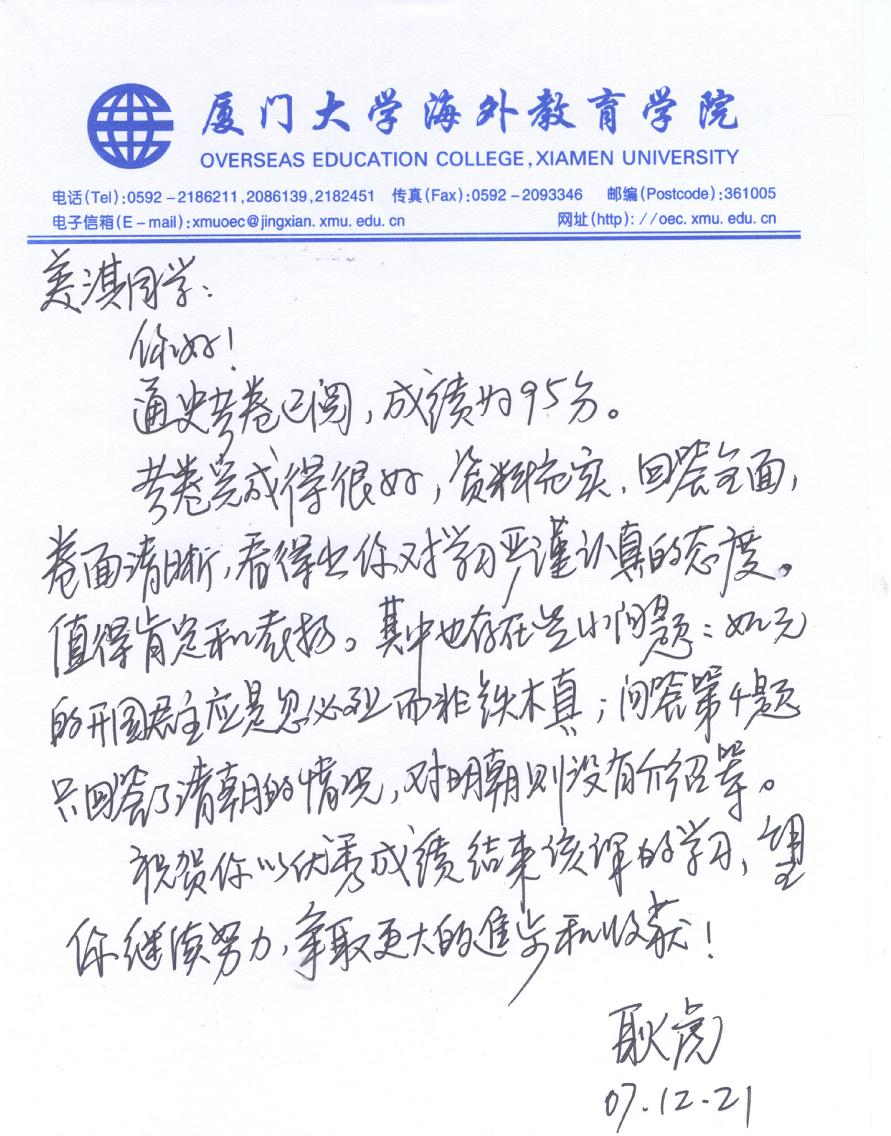 厦门大学海外教育学院
OVERSEAS EDUCATION COLLEGE, XIAMEN UNIVERSITY
电话(Tel):0592-2186211,2086139,2182451 传真(Fax):0592-2093346 邮编(Postcode):361005
电子信箱(E-mail):xmuoec@jingxian.xmu.edu.cn 网址(http)://oec.xmu.edu.cn
美淇同学:
你好!
通史考卷已阅,成绩为95分。
考卷完成得很好,资料充实,回答全面,
卷面清晰,看得出你对学习严谨认真的态度。
值得肯定和表扬。其中也存在些小问题:如元
的开国君主应是忽必烈而非铁木真;问答第4题
只回答了清朝的情况,对明朝则没有介绍等。
祝贺你以优秀成绩结束该课的学习,望
你继续努力,争取更大的进步和收获!
耿虎
07.12.21